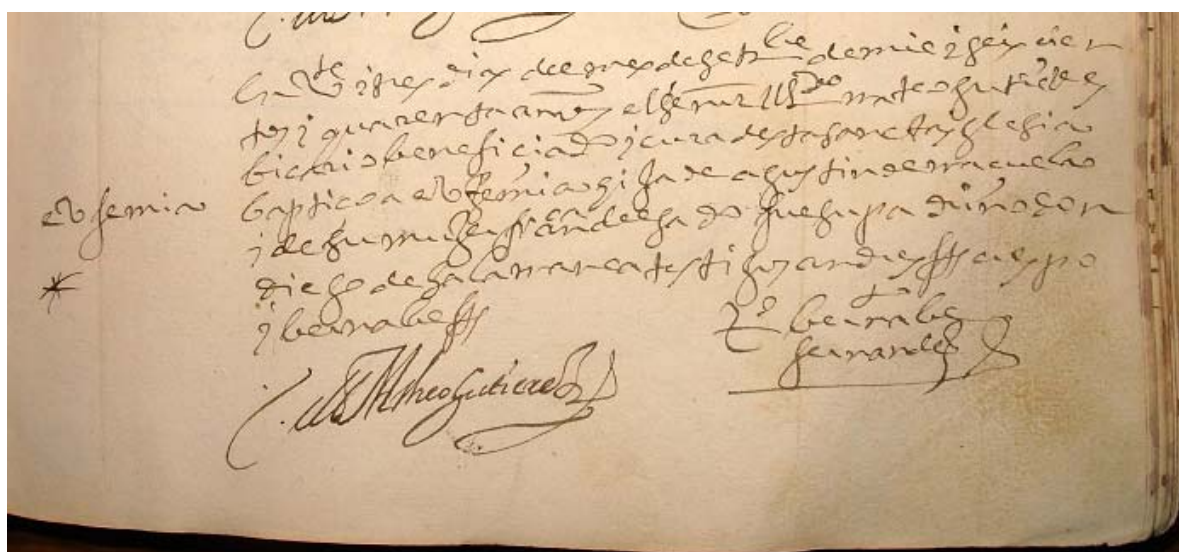 en Ve i tres dias del mes de setre de mil i seiscien
tos i quarenta años el señor lldo mateo gutierres
bicario beneficiado i cura desta santa yglesia
eufemia
baptiço a eufemia hija de agustin de maçuela
i de su muger franca delgado fue su padrino don
diego de salamanca testigos andres frs crespo
i bernabe frs
Mtheo Gutierrez
to bernabe
fernandes